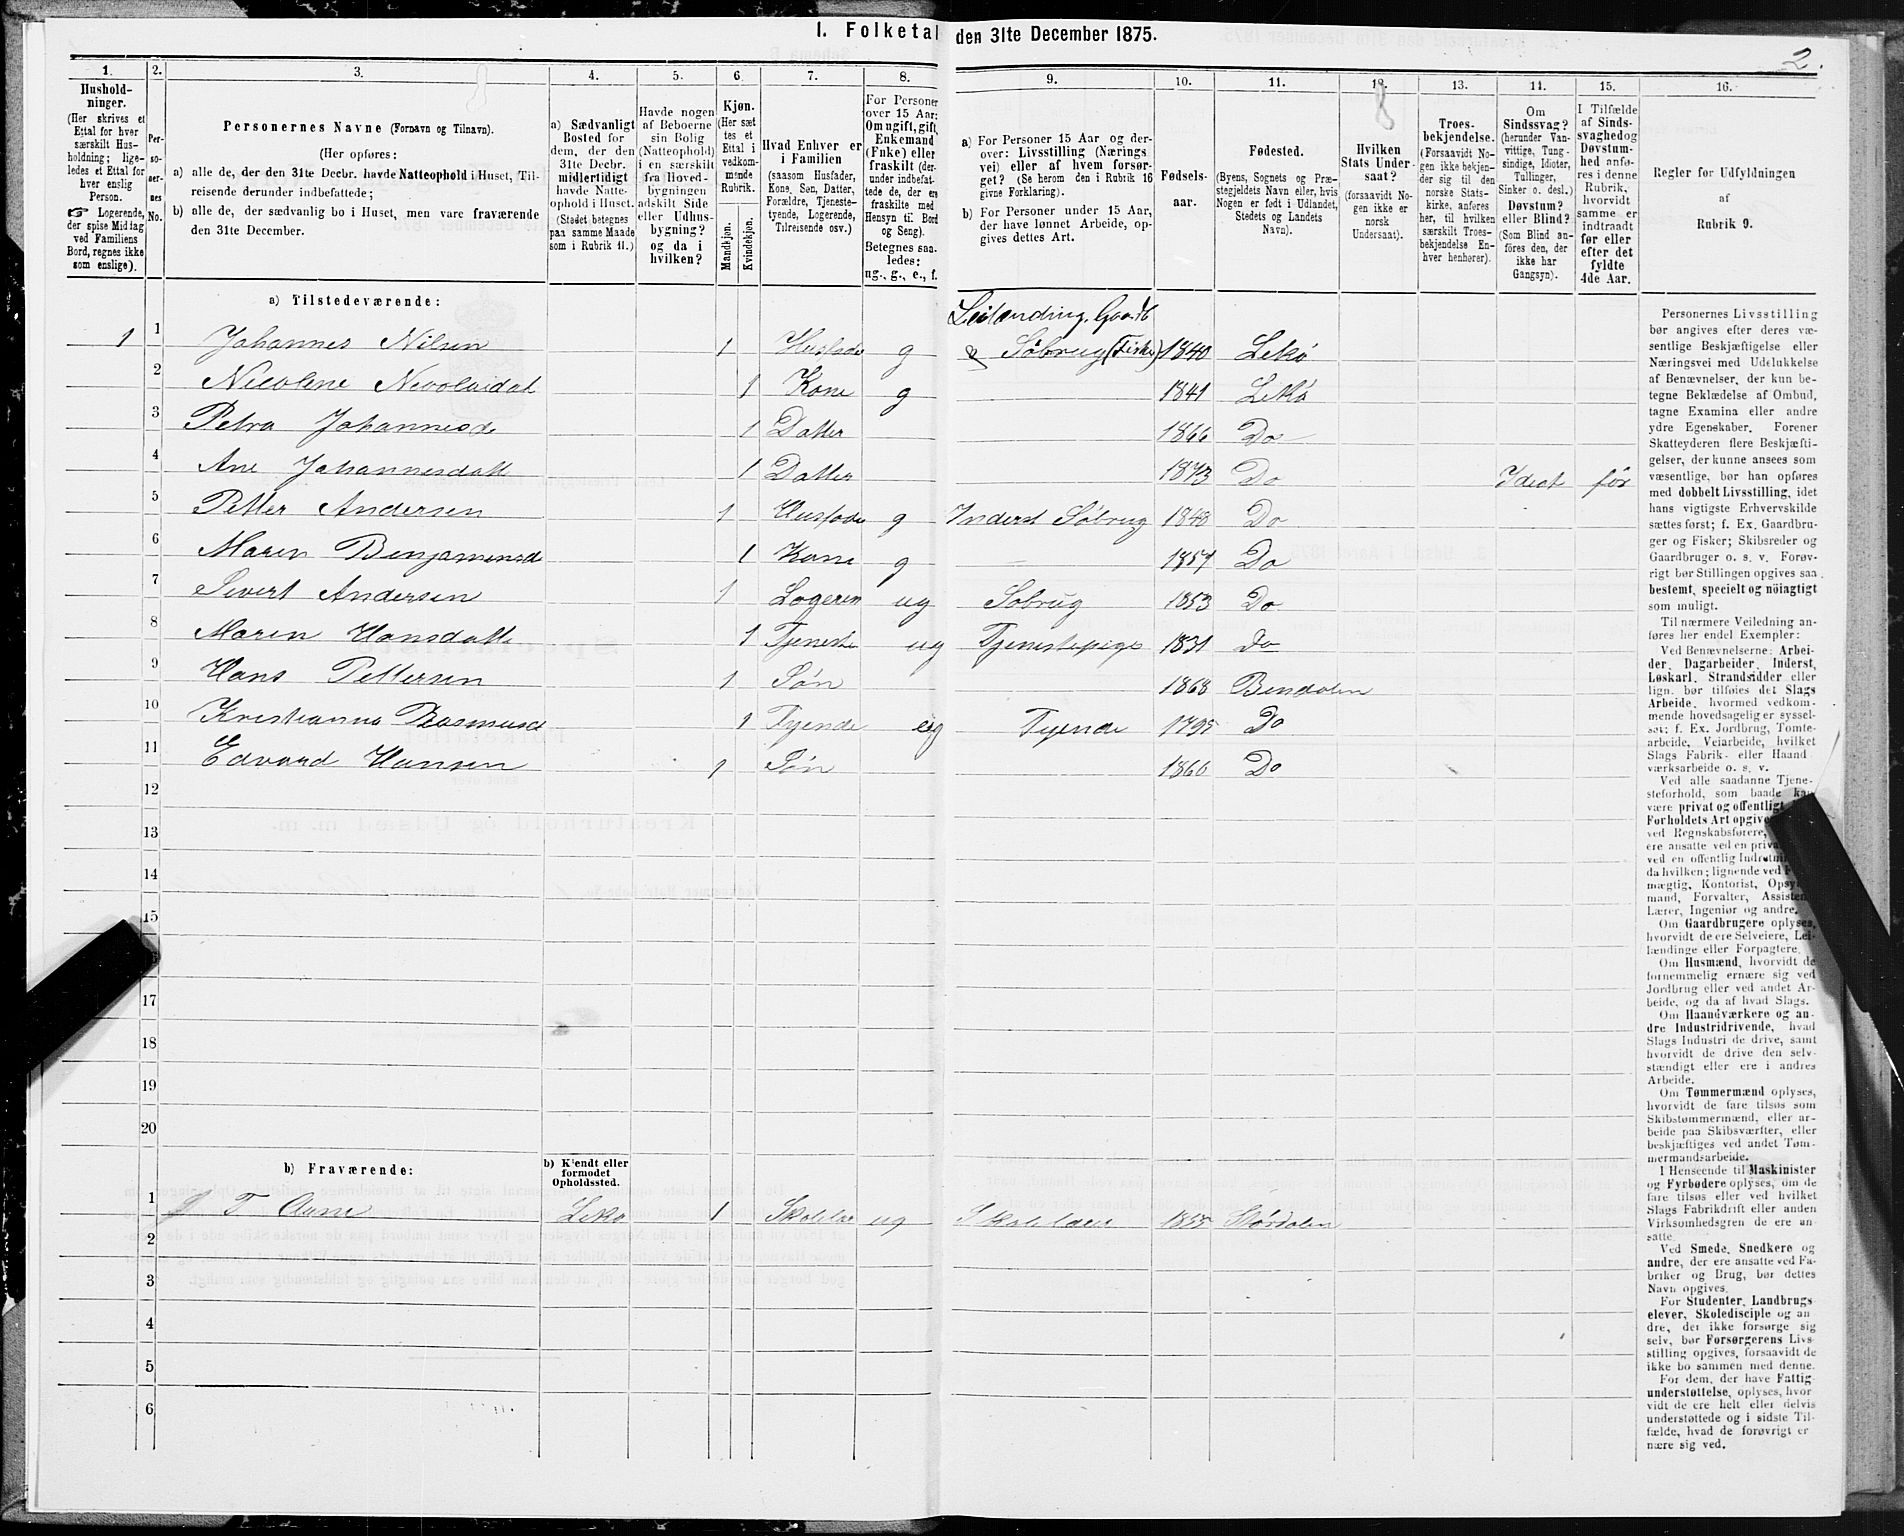 I. Folketal den 31te December 1875.
2.
1. 2. 3. 4. 5. 6. 7. 8. 9. 10. 11. 12. 13. 14. 15. 16.
8 8
Hushold-
ninger.
(Her skrives et
Ettal for hver
særskilt Hus-
holdning; lige-
ledes et Ettal for
hver enslig
Person.
☞ Logerende,
der spise Middag
ved Familiens
Bord, regnes ikke
som enslige).
Per-
so-
ner-
nes
No.
Personernes Navne (Fornavn og Tilnavn).
(Her opføres:
a) alle de, der den 31te Decbr. havde Natteophold i Huset, Til-
reisende derunder indbefattede;
b) alle de, der sædvanlig bo i Huset, men vare fraværende
den 31te December.
a) Sædvanligt
Bosted for
dem, der den
31te Decbr.
midlertidigt
havde Natte-
ophold i Huset.
(Stedet betegnes
paa samme Maade
som i Rubrik 11.)
Havde nogen
af Beboerne
sin Bolig
(Natteophold)
i en særskilt
fra Hoved-
bygningen
adskilt Side
eller Udhus-
bygning?
og da i
hvilken?
Kjøn.
(Her sæt
tes et
Ettal i
vedkom-
mende
Rubrik.
Mandkjøn.
Kvindekjøn.
Hvad Enhver er
i Familien
(saasom Husfader,
Kone, Søn, Datter,
Forældre, Tjeneste-
tyende, Logerende,
Tilreisende osv.)
For Personer
over 15 Aar:
Om ugift, gift,
Enkemand
(Enke) eller
fraskilt (der-
under indbefat-
tede de, der ere
fraskilte med
Hensyn til Bord
og Seng).
Betegnes saa-
ledes:
ug., g., e., f.
a) For Personer 15 Aar og der-
over: Livsstilling (Nærings
vei) eller af hvem forsør-
get? (Se herom den i Rubrik 16
givne Forklaring).
b) For Personer under 15 Aar,
der have lønnet Arbeide, op-
gives dettes Art.
Fødsels-
aar.
Fødested.
(Byens, Sognets og Præ-
stegjeldets Navn eller, hvis
Nogen er født i Udlandet,
Stedets og Landets
Navn).
Hvilken
Stats Under-
saat?
(forsaavidt No-
gen ikke er
norsk
Undersaat).
Troes-
bekjendelse.
(Forsaavidt No-
gen ikke bekjen-
der sig til den
norske Stats-
kirke, anføres
her, til hvilken
særskilt Troes-
bekjendelse En-
hver henhører).
Om
Sindssvag?
(herunder Van-
vittige, Tung-
sindige, Idioter,
Tullinger,
Sinker o. desl.)
Døvstum?
eller Blind?
(Som Blind an-
føres den, der
ikke har
Gangsyn).
I Tilfælde
af Sinds-
svaghed og
Døvstum-
hed anfø-
res i denne
Rubrik,
hvorvidt
samme er
indtraadt
før eller
efter det
fyldte
4de Aar.
Regler for Udfyldningen
af
Rubrik 9.
a) Tilstedeværende:
Leilænding, Gaardb
1 1 Johannes Nilsen 1 Husfade g & Søbrug (Fiske) 1840 Lekø
2 Nicoline 1 Kone g 1841 Lekø
3 Petra Johannesd 1 Datter 1866 Do
4 Ane Johannesdatt 1 Datter 1873 Do Idiot før
5 Petter Andersen 1 Husfade g Inderst Søbrug 1840 Do
6 Maren Benjaminsd 1 Kone g Do
7 Sivert Andersen 1 Logeren ug Søbrug 1853 Do
8 Maren Hansdatte 1 Tjeneste ug Tjenestepige 1831 Do
9 Hans Pettersen 1 Søn 1868 Bindalen
10 Kristianna Rasmusd 1 Tyende ug Tyende 1795 Do
11 Edvard Hansen 1 Søn 1860 Do
12
13
14
15
17
18
19
20
b) Fraværende:
b) Kjendt eller
formodet
Opholdssted.
1 T Aune Leko 1 Skolelær ug Skolelærer 1855 Størdalen
2
3
4
5
6
Personernes Livsstilling
bør angives efter deres væ-
sentlige Beskjæftigelse eller
Næringsvei med Udelukkelse
af Benævnelser, der kun be-
tegne Beklædelse af Ombud,
tagne Examina eller andre
ydre Egenskaber. Forener
Skatteyderen flere Beskjæfti-
gelser, der kunne ansees som
væsentlige, bør han opføres
med dobbelt Livsstilling, idet
hans vigtigste Erhvervskilde
sættes først; f. Ex. Gaardbru-
ger og Fisker; Skibsreder og
Gaardbruger o. s. v. Forøv-
rigt bør Stillingen opgives saa
bestemt, specielt og nøiagtigt
som muligt.
Til nærmere Veiledning an-
føres her endel Exempler:
Ved Benævnelserne: Arbei-
der, Dagarbeider, Inderst,
Løskarl, Strandsidder eller
lign. bør tilføies det Slags
Arbeide, hvormed vedkom-
mende hovedsagelig er syssel-
sat; f. Ex. Jordbrug, Tomte-
arbeide, Veiarbeide, hvilket
Slags Fabrik- eller Haand
værksarbeide o. s. v.
Ved alle saadanne Tjene-
steforhold, som baade kan
være privat og offentligt,
Forholdets Art opgives
ved Regnskabsførere,
ere ansatte ved en priva
ved en offentlig Indretni
da hvilken; lignende ved F
mægtig, Kontorist, Opsy
mand, Forvalter, Assisten
Lærer, Ingeniør og andre.
Om Gaardbrugere oplyses,
hvorvidt de ere Selveiere, Lei-
lændinge eller Forpagtere.
Om Husmænd, hvorvidt de
fornemmelig ernære sig ved
Jordbrug eller ved andet Ar-
beide, og da af hvad Slags.
Om Haandværkere og an-
dre Industridrivende, hvad
Slags Industri de drive, samt
hvorvidt de drive den selv-
stændigt eller ere i andres
Arbeide.
Om Tømmermænd oplyses,
hvorvidt de fare tilsøs som
Skibstømmermænd, eller ar-
beide paa Skibsværfter, eller
beskjæftiges ved andet Tøm-
mermandsarbeide.
I Henseende til Maskinister
og Fyrbødere oplyses, om de
fare tilsøs eller ved hvilket
Slags Fabrikdrift eller anden
Virksomhedsgren de ere an-
satte.
Ved Smede, Snedkere og
andre, der ere ansatte ved Fa-
briker og Brug, bør dettes
Navn opgives.
For Studenter, Landbrugs
elever, Skoledisciple og an
dre, der ikke forsørge sig
selv, bør Forsørgerens Livs-
stilling opgives, forsaavidt de
ikke bo sammen med denne.
For dem, der have Fattig
understøttelse, oplyses, hvor
vidt de ere helt eller delvis
understøttede og i sidste Til-
fælde, hvad de forøvrigt er
nære sig ved.